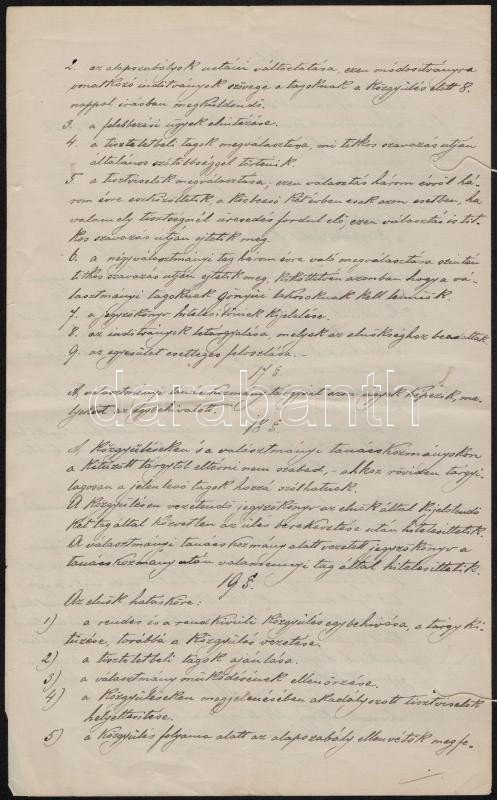 2. az alapszabályok netáni változtatása, ezen módosítványra
vonatkozó indítványok szövege a tagoknak a közgyűlés előtt 8.
nappal írásban megküldendő.
3. a felebbezési ügyek elintézése.
4. a tiszteletbeli tagok megválasztása, mi titkos szavazás utján
általános szótöbbséggel történik.
5. a tisztviselők megválasztása; ezen választás három évről há-
rom évre eszközöltetik, a közbeeső két évben csak azon esetben, ha
valamely tisztségnél üresedés fordul elő; ezen választás is tit-
kos szavazás utján ejtetik meg.
6. a négy választmányi tag három évre való megválasztása szintén
titkos szavazás utján ejtetik meg, kiköttetvén azonban hogy a vá-
lasztmányi tagoknak gönyűi lakosoknak kell lenniök.
7. a jegyzőkönyv hitelesítőinek kijelölése.
8. az indítványok letárgyalása, melyek az elnökséghez beadattak.
9. az egyesület esetleges feloszlása. –
17 §.
A választmányi tanácskozmány tárgyait azon ügyek képezik, me-
lyekért az egybehivatott.
18 §.
A közgyűléseken és a választmányi tanácskozmányokon
a kitűzött tárgytól eltérni nem szabad, – ahhoz röviden tárgyi-
lagosan a jelenlevő tagok hozzá szólhatnak.
A közgyűlésen vezetendő jegyzőkönyv az elnök által kijelölendő
két tag által közvetlen az ülés berekesztése után hitelesíttetik.
A választmányi tanácskozmány alatt vezetett jegyzőkönyv a
tanácskozmány után valamennyi tag által hitelesíttetik.
19 §.
Az elnök hatásköre:
1) a rendes és a rendkívüli közgyűlés egybehivása, a tárgy ki-
tűzése, továbbá a közgyűlés vezetése.
2) a tiszteletbeli tagok ajánlása.
3) a választmány működésének ellenőrzése.
4) a közgyűléseken megjelenésében akadályozott tisztviselők
helyettesítése.
5) a közgyűlés folyama alatt az alapszabály ellen vétők megfe-
darabanth